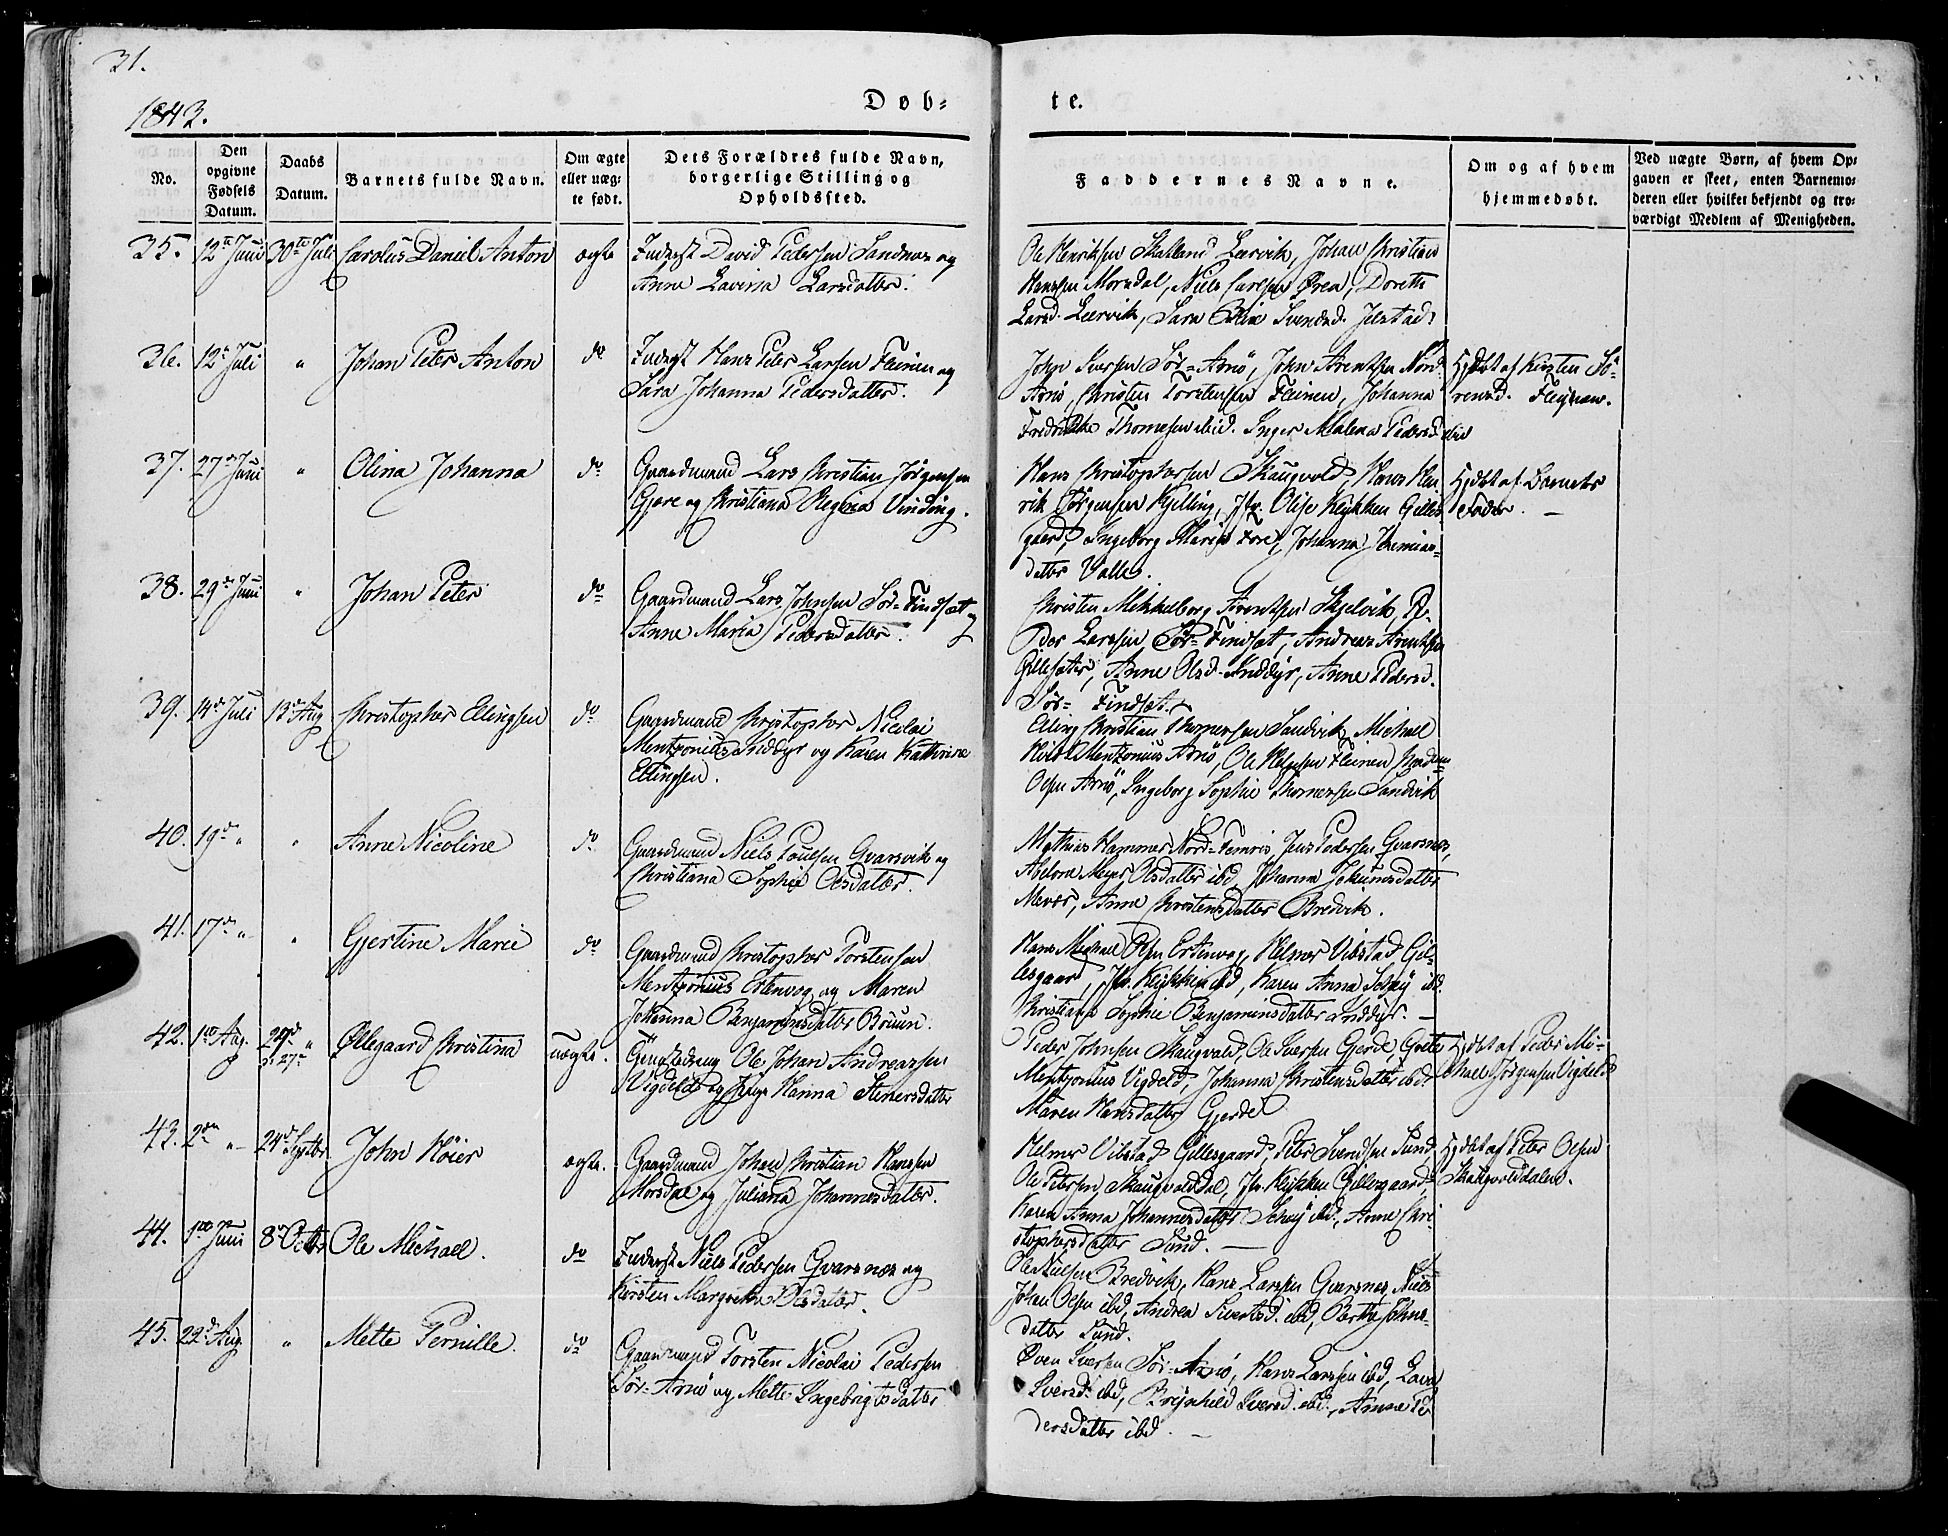 31.
1843.
Døb-
te.
No.
Den
opgivne
Fødsels
Datum.
Daabs
Datum.
Barnets fulde Navn.
Om ægte
eller uæg-
te født.
Dets Forældres fulde Navn,
borgerlige Stilling og
Opholdssted.
Faddernes Navne.
Om og af hvem
hjemmedøbt.
Ved uægte Børn, af hvem Op-
gaven er skeet, enten Barnemo-
deren eller hvilket bekjendt og tro-
værdigt Medlem af Menigheden.
35. 12te Juni 30te Juli Carolus Daniel Anton ægte Inderst David Pedersen Sandnes og
Anne Lavina Larsdatter.
Ole Henriksen Skatland Leervik, Johan Christian
Hanssen Morsdal, Niels Carlsen Øren, Dorette
Larsd. Leervik, Sara Svendsd. Jelstad.
36. 12te Juli " Johan Peter Anton do Inderst Hans Peter Larsen Fleinen og
Sara Johanna Pedersdatter.
John Iversen Sör-Arnö, John Arentsen Nord-
Arnö, Christen Torstensen Fleinen, Johanna
Fredrikke Thomesen ibid. Inger Malena Pedersd. ibid
Hjdbt af Kirsten Sö-
rensd. Fleinen.
37. 27de Juni " Olina Johanna do Gaardmand Lars Christian Jörgensen
Gjere og Christiana Regina Vinding.
Hans Christophersen Skaugvold, Hans Hen-
rik Jörgensen Gilling, Jfr. Olise Klykken Gilles-
gaard, Ingeborg Maria Fore, Johanna Jeremias-
datter Valle.
Hjdbt af Barnets
Fader. —
38. 29de Juni " Johan Peter do Gaardmand Lars Johnsen Sör-Findsæt og
Anne Maria Pedersdatter.
Christen Mikkelborg Arentsen Skjelvik, Pe-
der Larsen Sör-Findsæt, Andreas Arentsen
Gillesæter, Anne Olsd. Inddyr, Anne Pedersd.
Sör-Findsæt
39. 14de Juli 13de Aug Christopher Ellingsen do Gaardmand Christopher Nicolai
Mentzonius Inddyr og Karen Kathrine
Ellingsen.
Elling Christian Thomesen Sandvik, Michael
Mentzonius Arnö, Ole Fleinen,
Olsen Arnö, Ingeborg Sophie Thomesen Sandvik
40. 19de " " Anne Nicoline do Gaardmand Niels Poulsen Qvarsvik og
Christiana Sophie Olsdatter.
Mathias Hammer Nord-Femris, Jens Pedersen Qvarsnes,
Abelona Meyer Olsdatter ibd, Johanna Jokumsdatter
Mevær, Anne Christensdatter Bredvik.
41. 17de " " Gjertine Marie do Gaardmand Christopher Torstensen
Mentzonius Ertenvog og Maren
Johanna Benjaminsdatter Bruun.
Hans Michael Ertenvog, Helmer Vibstad Gil-
lesgaard, Jfr. Klykken ibd, Karen Anna Schöy ibd.
Christiana Sophie Benjaminsdatter Inddyr. —
42. 1ste Aug. 20de " Øllegaard Christina uægte. Ole Johan Andreassen
3: 27de
Vigdel og Pige Hanna Steners datter
Peder Johnsen Skaugvold, Ole Iversen Gjerde, Grete
Mentzonius Vigdel, Johanna Christensdatter ibd,
Maren Hansdatter Gjerde
Hjdbt af Peder Mi-
chael Jörgensen Vigdel
43. 2den " 24de Septbr John Höier ægte. Gaardmand Johan Christian Hanssen
Morsdal og Juliana Johannesdatter.
Helmer Vibstad Gillesgaard, Peter Svendsen Sund,
Ole Petersen Skaugvolddal, Jfr. Klykken Gillesgaard,
Karen Anna Johannesdatter Schöy ibd, Anne Chri-
stophersdatter Sund. —
Hjdbt af Peter Olsen
Skaugvolddalen.
44. 1ste Juni 8de Octbr Ole Michael. do Inderst Niels Pedersen Qvarsnes og
Kirsten Margrethe Olsdatter.
Ole Nielsen Bredvik, Hans Larsen Qvarsnes, Niels
Johan Olsen ibd, Andrea Sivertsd. ibd, Bertha Johns-
datter Sund.
45. 22de Aug. " Mette Pernille. do Gaardmand Torsten Nicolai Pedersen
Sör-Arnö og Mette Ingebrigtsdatter
Oven Iversen Sör-Arnö, Hans Larsen ibd,
Iversd. ibd, Brynhild Iversd. ibd, Anne Pe-
dersdatter ibd. —